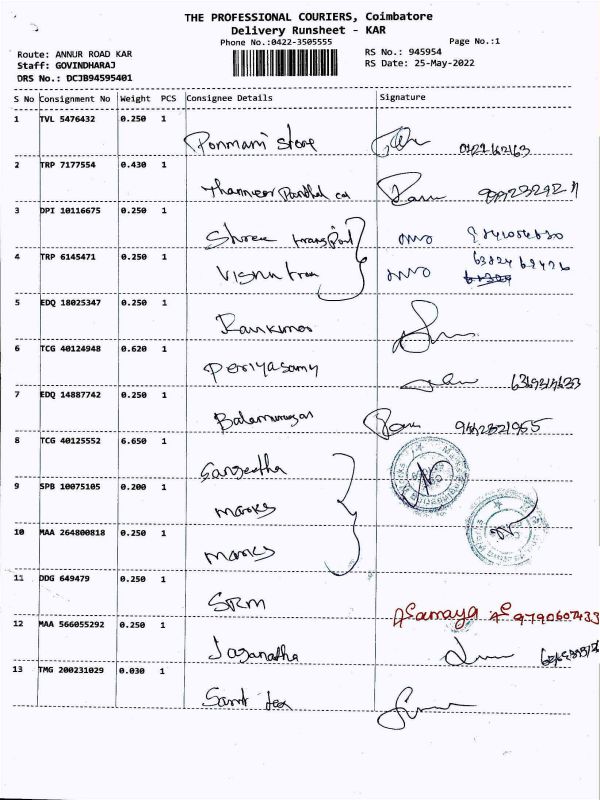 THE PROFESSIONAL COURIERS, Coimbatore
Delivery Runsheet - KAR
Phone No.:0422-3505555
Page No.:1
Route: ANNUR ROAD KAR
RS No.: 945954
Staff: GOVINDHARAJ
RS Date: 25-May-2022
DRS No.: DCJB94595401
S No Consignment No Weight PCS Consignee Details Signature
1 TVL 5476432 0.250 1
Ponmani Store
2 TRP 7177554 0.430 1
3 DPI 10116675 0.250 1
Shree transport
4 TRP 6145471 0.250 1
Vishnu tran
5 EDQ 18025347 0.250 1
Ramkumar
6 TCG 40124948 0.620 1
Periyasamy
7 EDQ 14887742 0.250 1
Balamurugan
8 TCG 40125552 6.650 1
Sangeetha
9 SPB 10075105 0.200 1
marks
10 MAA 264800818 0.250 1
marks
11 DDG 649479 0.250 1
SRM 9790607433
12 MAA 566055292 0.250 1
Jaganatha
13 TMG 200231029 0.030 1